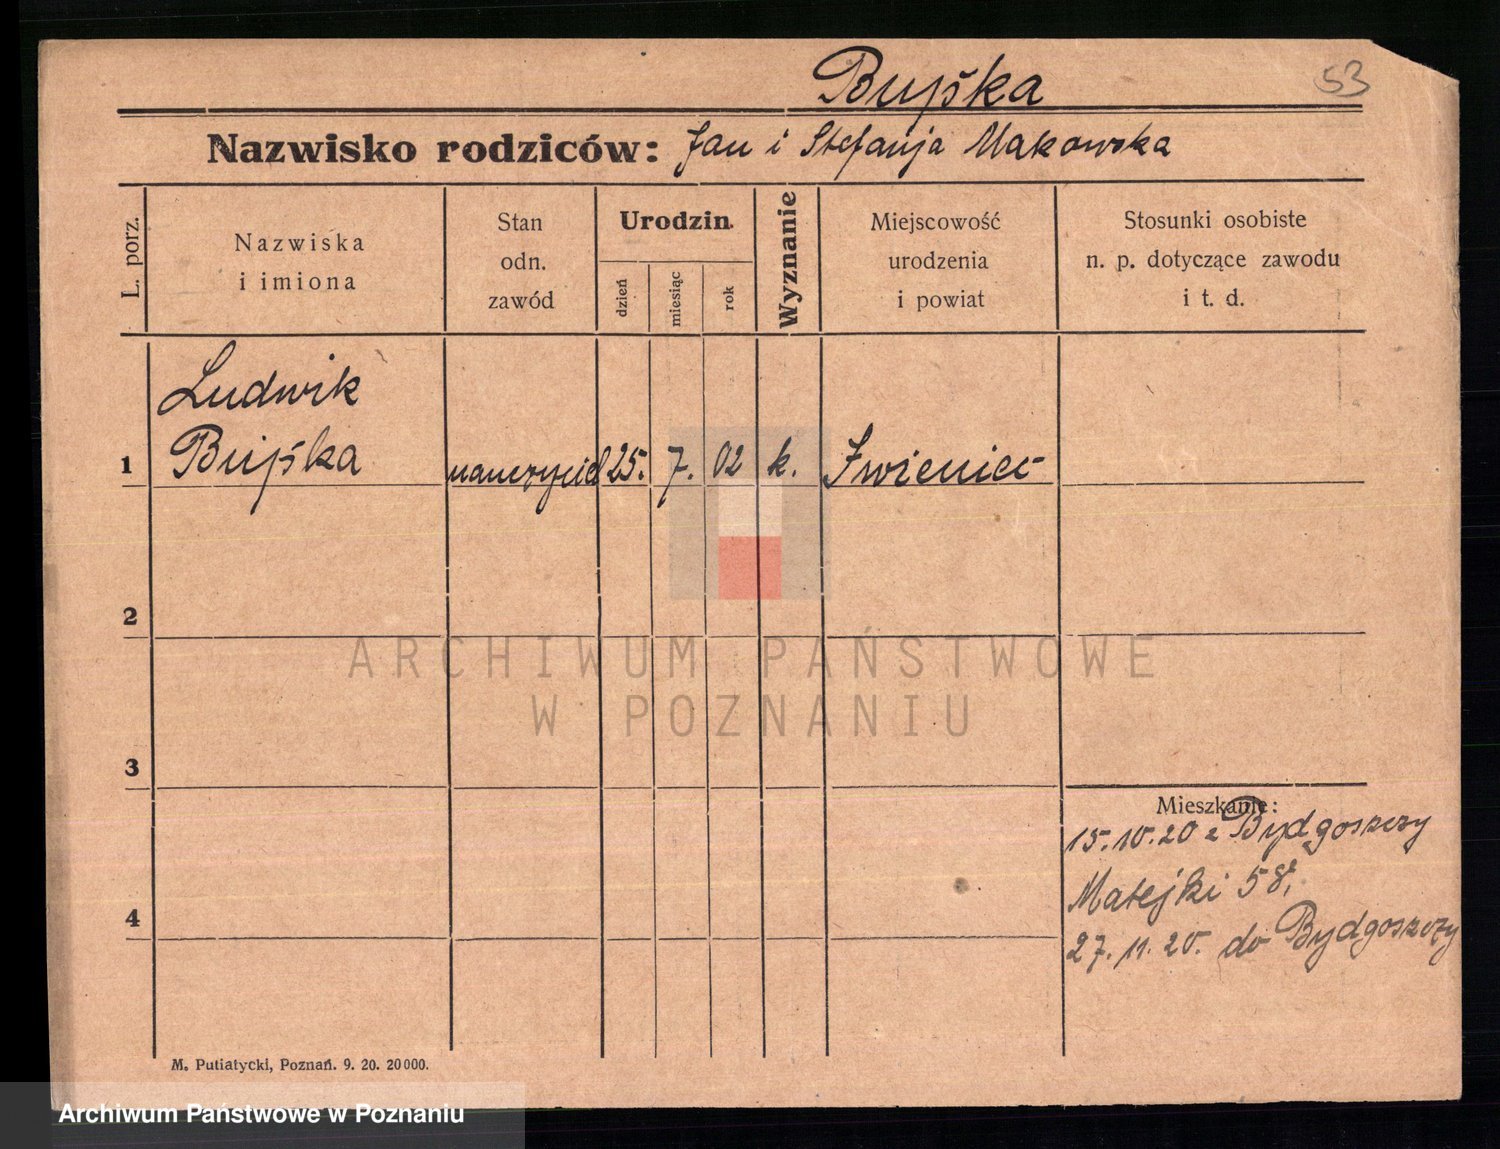 Bujśka
53
Nazwisko rodziców: Jan i Stefanja Makowska
L. porz.
Nazwiska
i imiona
Stan
odn.
zawód
Urodzin.
dzień
miesiąc
rok
Wyznanie
Miejscowość
urodzenia
i powiat
Stosunki osobiste
n. p. dotyczące zawodu
i t. d.
Ludwik
1 Bujśka nauczyciel 25. 7. 02 k. Iwieniec
2
3
4
Mieszkanie:
15.10.20 z Bydgoszczy
Matejki 58,
27.11.20. do Bydgoszczy
M. Putiatycki, Poznań. 9. 20. 20000.
ARCHIWUM PAŃSTWOWE
W POZNANIU
Archiwum Państwowe w Poznaniu